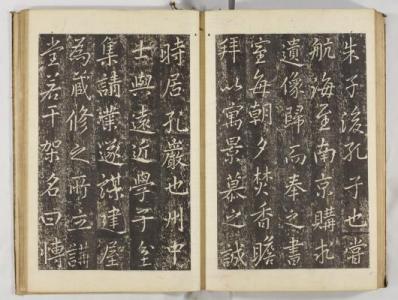 朱子後孔子也嘗
航海至南京購求
遺像歸而奉之書
室每朝夕焚香瞻
拜以寓景慕之誠
時居孔巖也州中
士與遠近學子坌
集請業遂謀建屋
為蔵修之所立講
堂若干架名曰愽